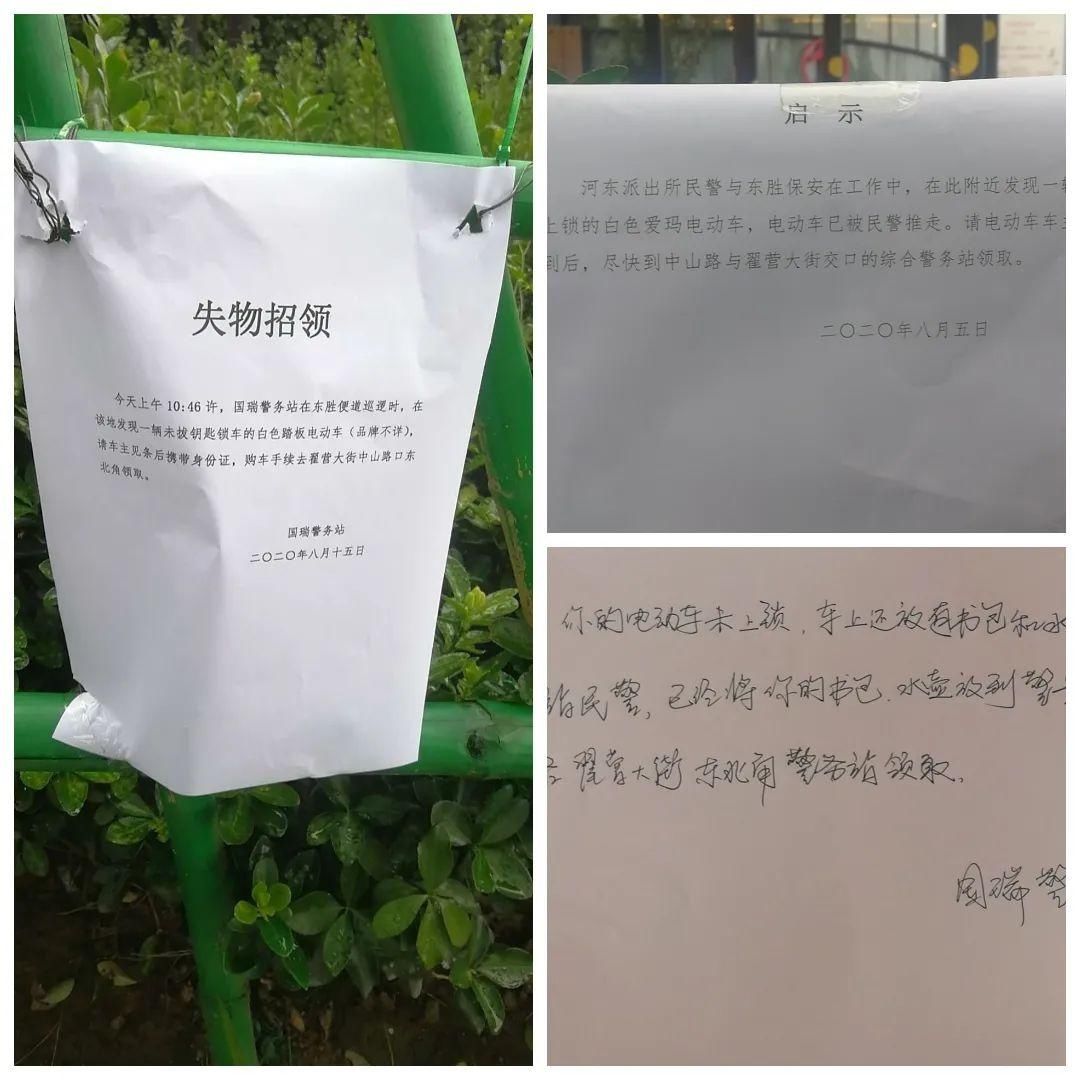 失物招领
今天上午10:46许，国瑞警务站在东胜便道巡逻时，在
该地发现一辆未拔钥匙锁车的白色踏板电动车（品牌不详），
请车主见条后携带身份证，购车手续去翟营大街中山路口东
北角领取。
国瑞警务站
二〇二〇年八月十五日
启示
河东派出所民警与东胜保安在工作中，在此附近发现一
上锁的白色爱玛电动车，电动车已被民警推走。请电动车车
到后，尽快到中山路与翟营大街交口的综合警务站领取。
二〇二〇年八月五日
你的电动车未上锁，车上还放有书包和水
站民警，已经将你的书包、水壶放到警
翟营大街东北角警务站领取。
国瑞警